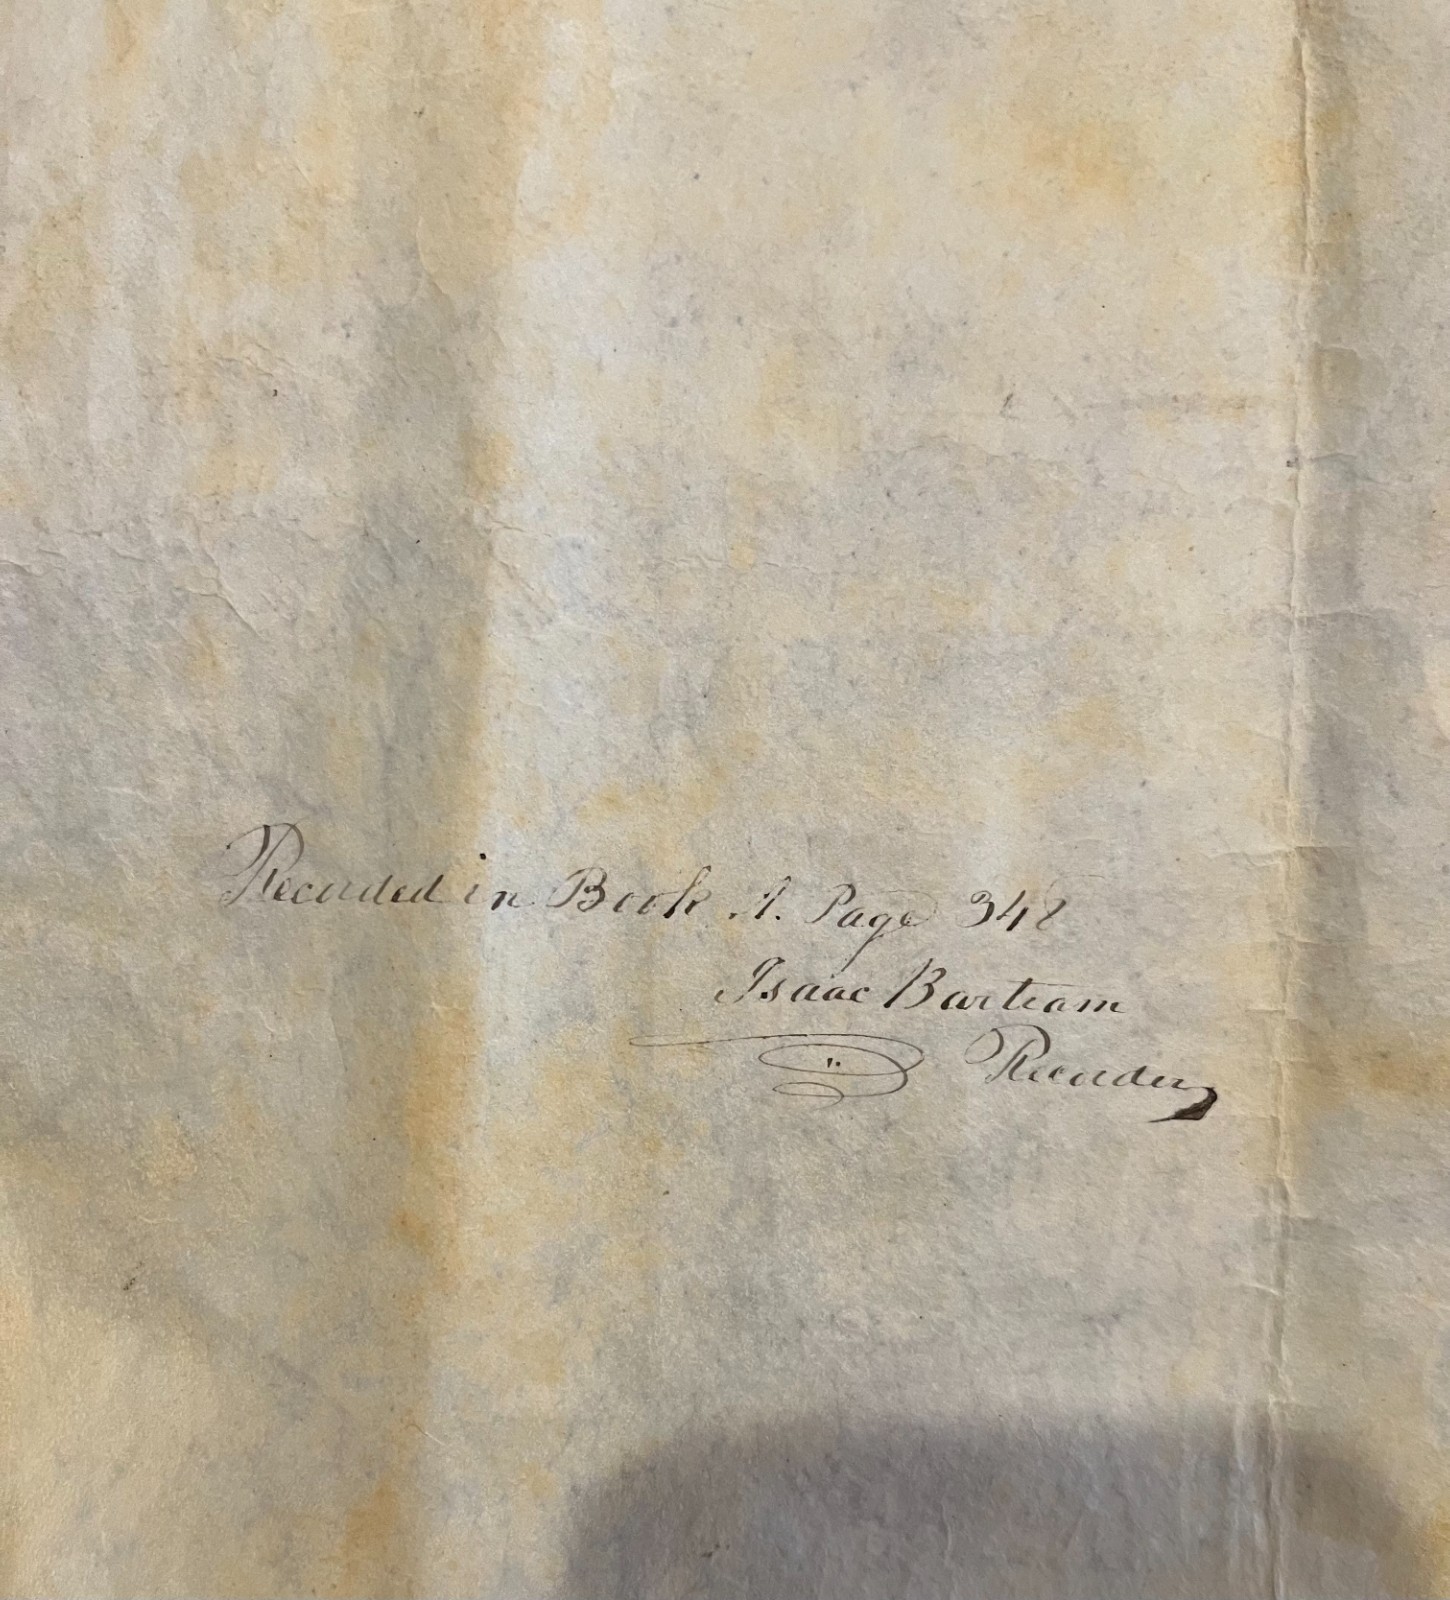 Recorded in Book A. Page 348
Isaac Bartram
Recorder